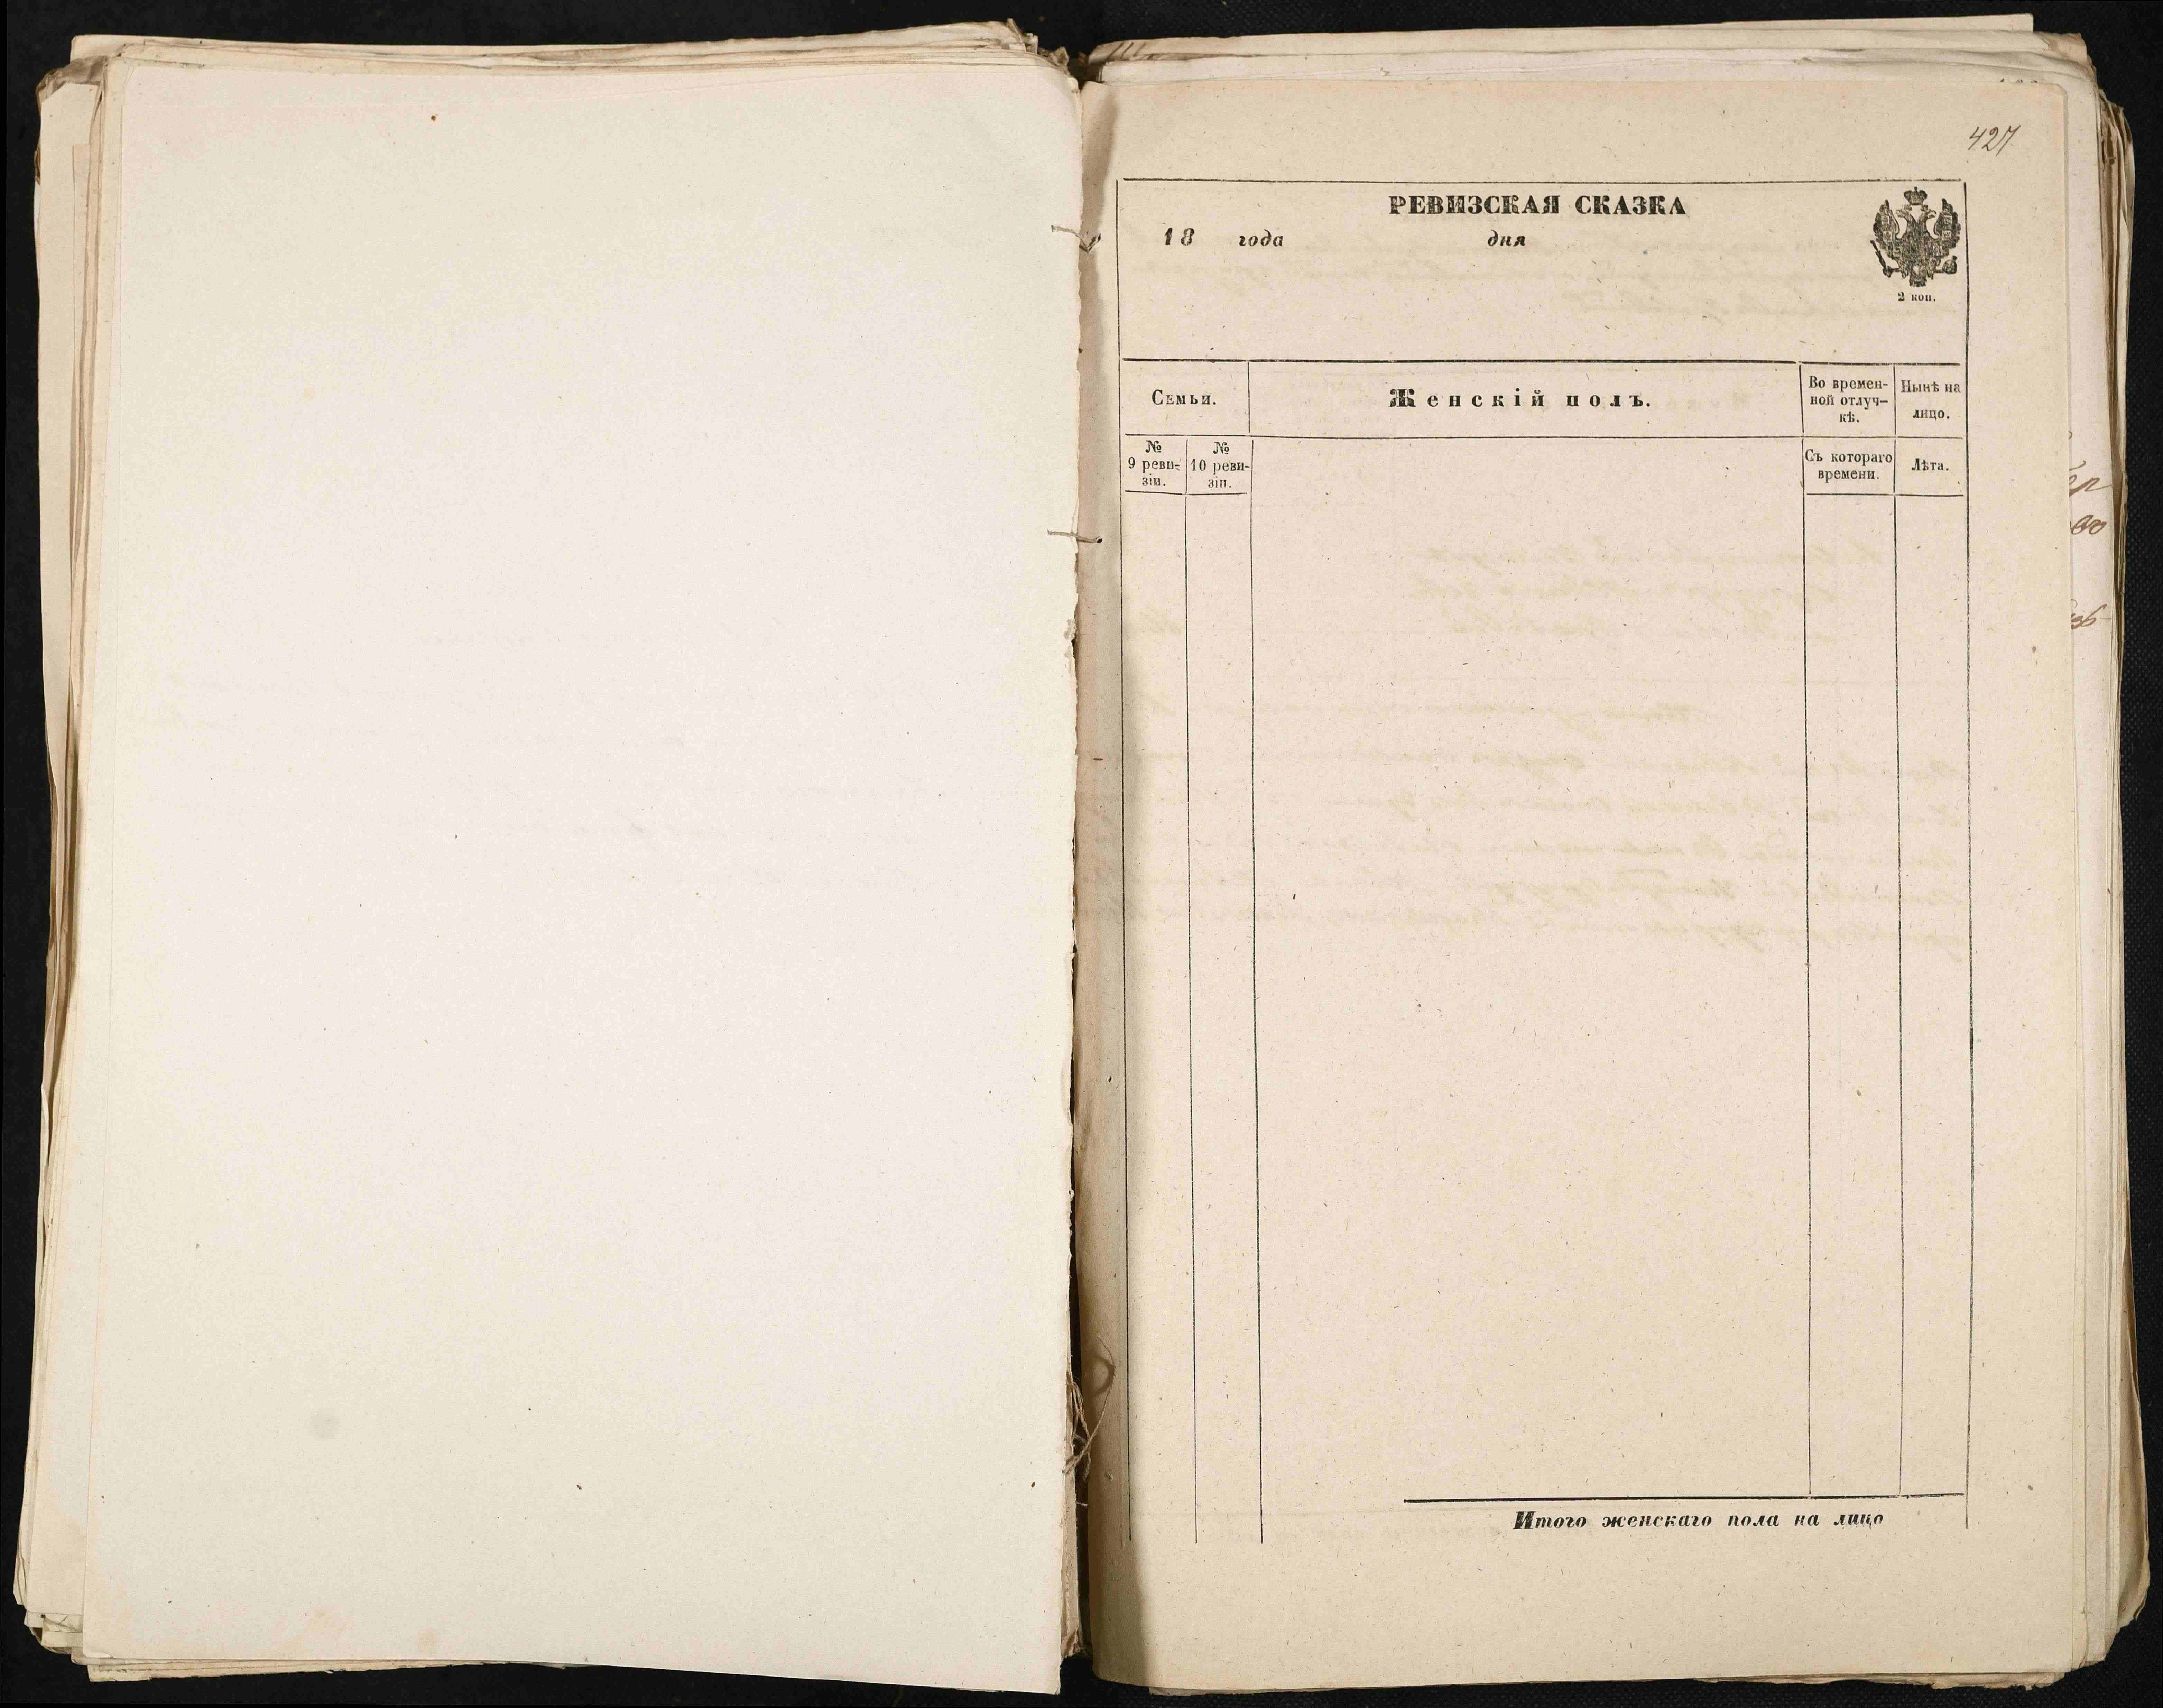 427
РЕВИЗСКАЯ СКАЗКА
18 года дня
2 коп.
Семьи.
Женскій полъ.
Во времен-
ной отлуч-
кѣ.
Нынѣ на
лицо.
№
9 реви-
зіи.
№
10 реви-
зіи.
Съ котораго
времени.
Лѣта.
Итого женскаго пола на лицо